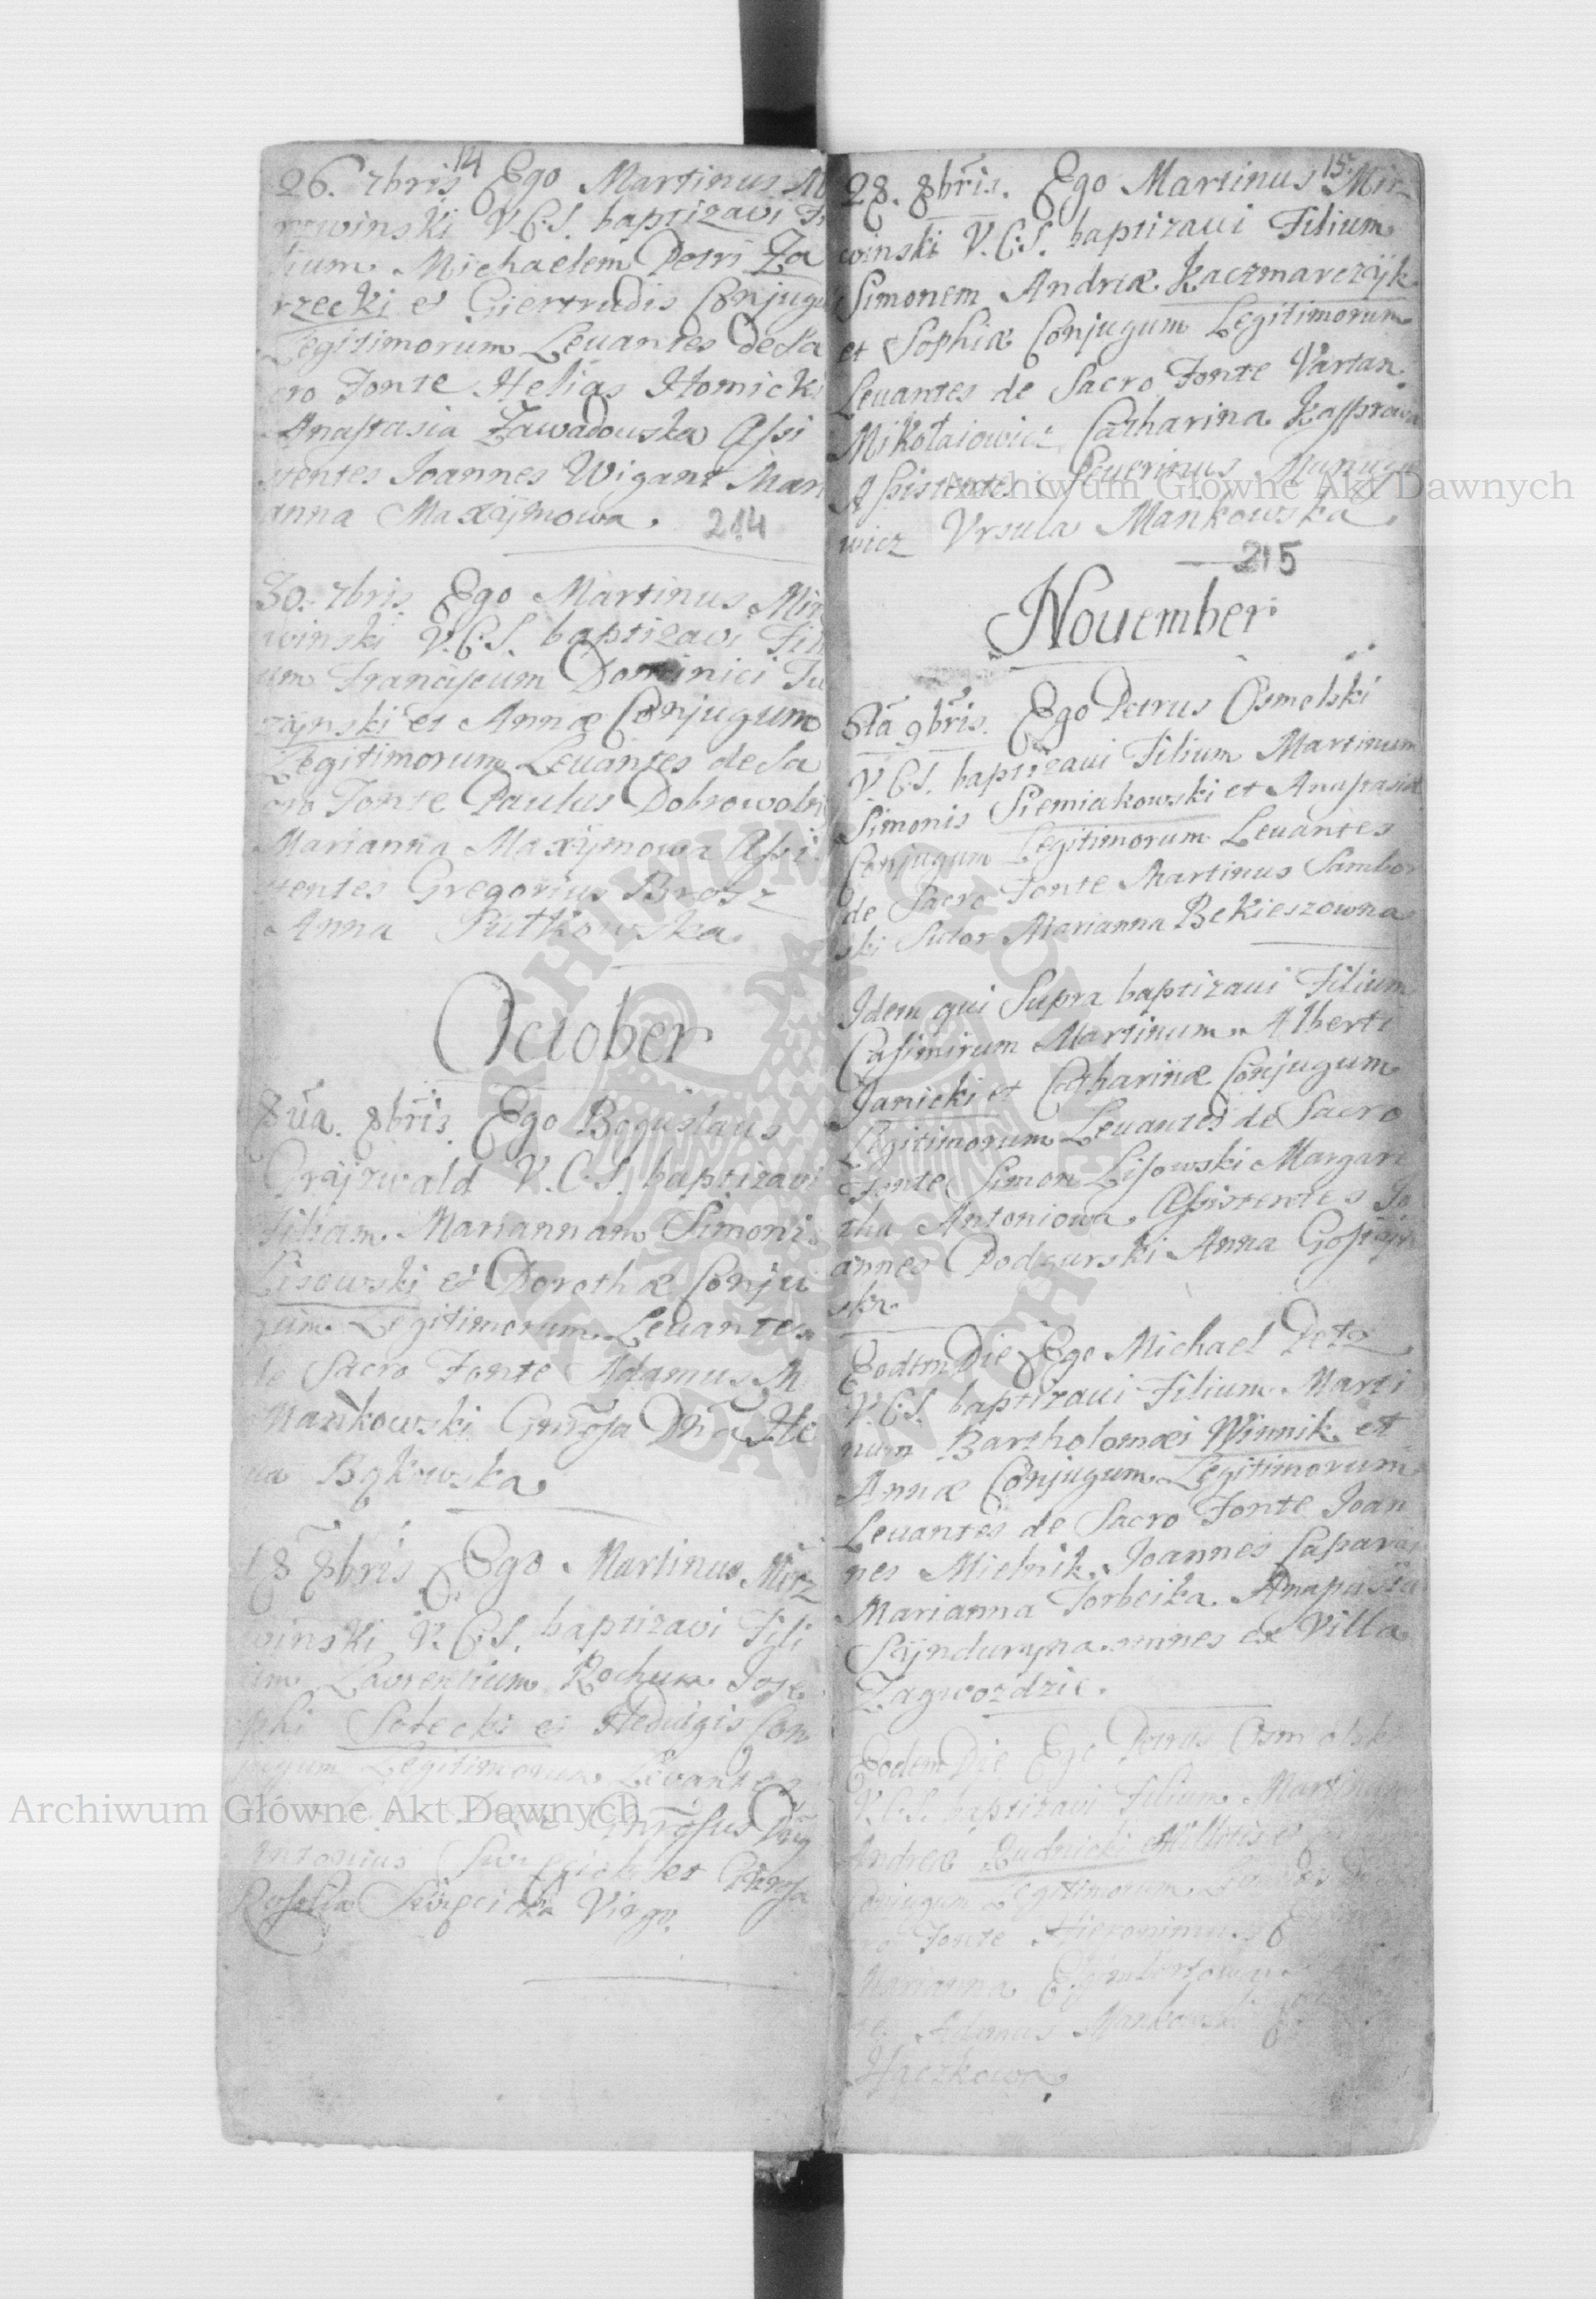 14
26. 7bris Ego Martinus Mi
rzwinski V.C.S. baptizavi Fi
lium Michaelem Petri Za
rzecki et Giertrudis Conjugu
Legitimorum Levantes de Sa
cro Fonte Helias Homicki
Anastasia Zawadowska Assi
stentes Joannes Wigant Mari
anna Maxÿmowa.
214
30. 7bris Ego Martinus Mirz
winski V.C.S. baptizavi Fili
um Franciscum Dominici Tu
zÿnski et Annæ Conjugum
Legitimorum Levantes de Sa
cro Fonte Paulus Dobrowols
Marianna Maxÿmowa Assi
stentes Gregorius Brosz
Anna Rutkowska
October
8va 8bris. Ego Boguslaus
Grajzwald V.C.S. baptizavi
Filiam Mariannam Simonis
Lisowski et Dorothæ Conju
gum Legitimorum Levantes
de Sacro Fonte Adamus M
Mankowski Gnrosa Dna He
na Bykowska
18 8bris Ego Martinus Mirz
winski V.C.S. baptizavi Fili
um Laurentium Rochum Jose
phi Sotecki et Hedvigis Con
jugum Legitimorum Levantes
Gnrosus Dnus
Antonius et Gnrosa
Rosalia Skupieicka Virgo.
15
28. 8bris. Ego Martinus Mirz
winski V.C.S. baptizaui Filium
Simonem Andreæ Kaczmarczÿk
et Sophiæ Conjugum Legitimorum
Leuantes de Sacro Fonte Vartan
Mikołaiowicz Catharina Kasprowa
Assistentes Seuerinus Munuge
wicz Vrsula Mankowska
215
Nouember
5ta 9bris. Ego Petrus Osmolski
V.C.S. baptizaui Filium Martinum
Simonis Siemiakowski et Anastasiæ
Conjugum Legitimorum Leuantes
de Sacro Fonte Martinus Sambor
ski Sutor Marianna Bekieszowna
Idem qui Supra baptizaui Filium
Casimirum Martinum Alberti
Janicki et Catharinæ Conjugum
Legitimorum Leuantes de Sacro
Fonte Simon Lisowski Margare
tha Antoniowa Assistentes Jo
annes Podgurski Anna Gostÿn
ska
Eodem Die Ego Michael Petz
V.C.S. baptizaui Filium Marti
num Bartholomæi Winnik et
Annæ Conjugum Legitimorum
Leuantes de Sacro Fonte Joan
nes Mielnik, Joannes Caparaj
Marianna Torbeika Anastasia
Sÿnduryna omnes ex Villa
Zagwozdzie.
Eodem Die Ego Petrus Osmolski
V.C.S. baptizavi Filium Martinum
Andreæ Rudnicki Militis et
Conjugum Legitimorum Levantes de Sa
cro Fonte Hieronimus
Marianna
tes Adamus Mankowski
Hączkowa
Archiwum Główne Akt Dawnych
Archiwum Główne Akt Dawnych
ARCHIWUM GŁÓWNE AKT DAWNYCH